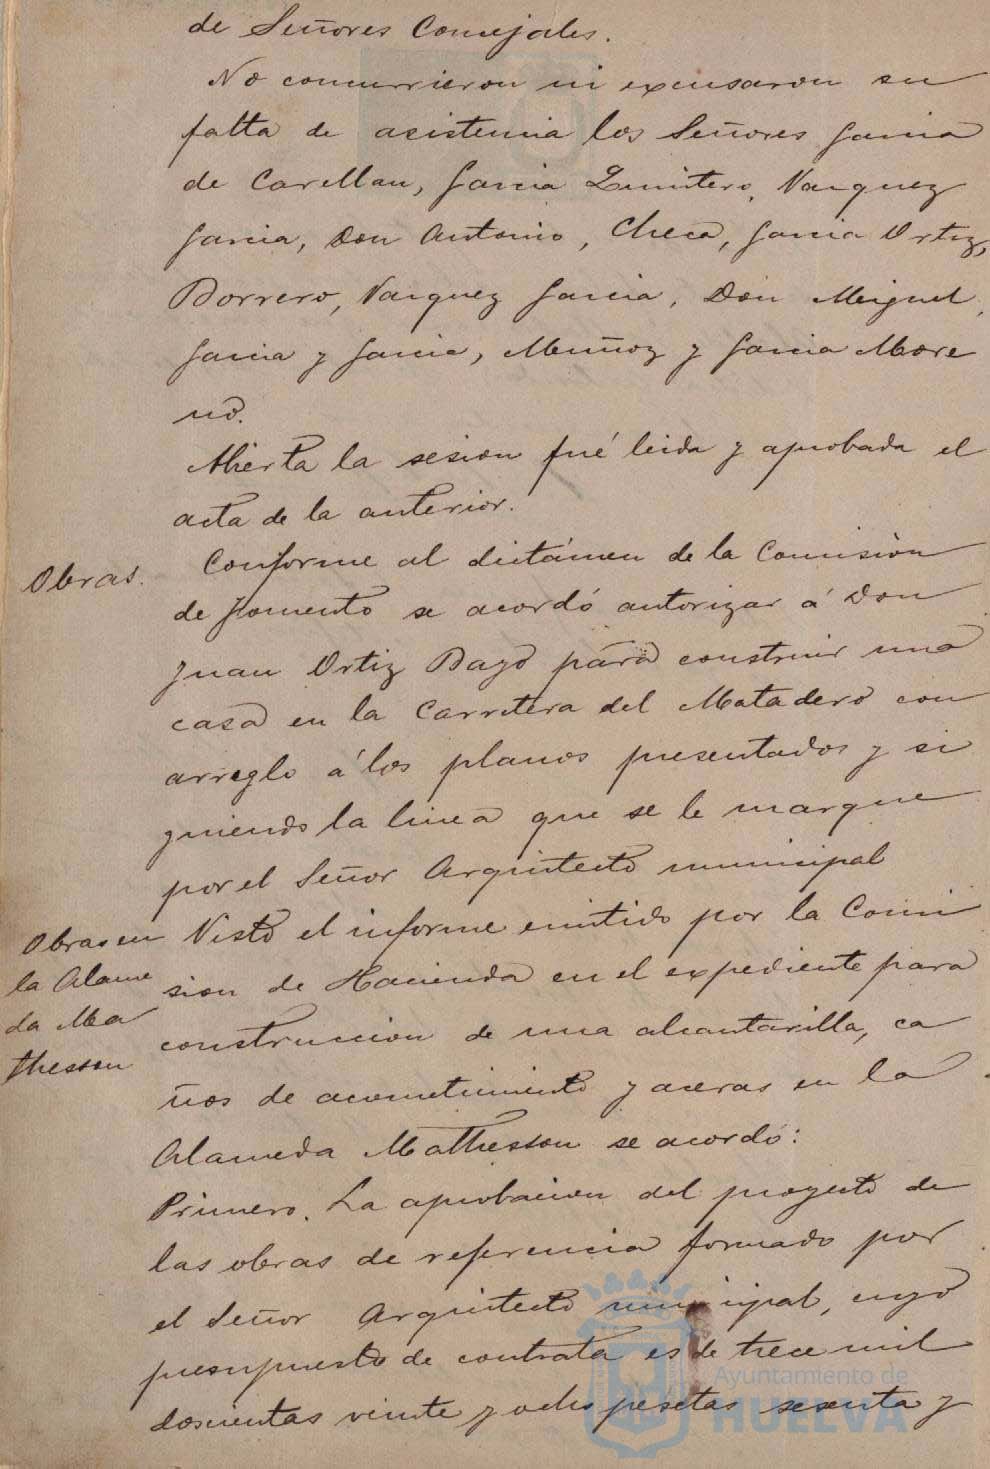 de Señores Concejales.
No concurrieron ni excusaron su
falta de asistencia los Señores Garcia
de Carellan, Garcia Quintero, Vazquez
Garcia, Don Antonio, Checa, Garcia Ortiz,
Borrero, Vazquez Garcia, Don Miguel,
Garcia y Garcia, Muñoz y Garcia More
no.
Abierta la sesion fué leida y aprobada el
acta de la anterior.
Obras.
Conforme al dictámen de la Comisión
de Fomento se acordó autorizar á Don
Juan Ortiz Bayo para construir una
casa en la Carretera del Matadero con
arreglo á los planos presentados y si
guiendo la linea que se le marque
por el Señor Arquitecto municipal
Obras en
la Alame
da Ma
thesson
Visto el informe emitido por la Comi
sion de Hacienda en el expediente para
construccion de una alcantarilla, ca
ños de acometimiento y aceras en la
Alameda Mathesson se acordó:
Primero. La aprobacion del proyecto de
las obras de referencia formado por
el Señor Arquitecto municipal, cuyo
presupuesto de contrata es de trece mil
doscientas veinte y ocho pesetas sesenta y
Ayuntamiento de
HUELVA